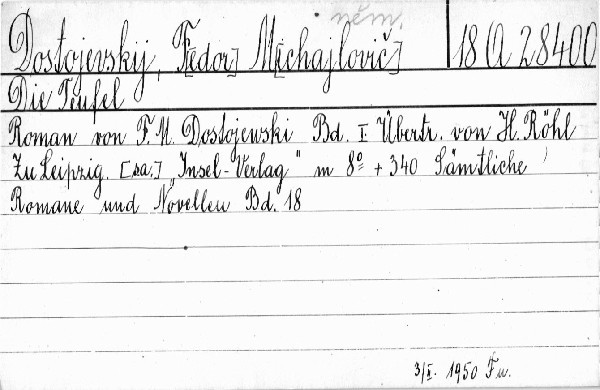 něm.
Dostojevskij, F[edor] M[ichajlovič] 18 A 28400
Die Teufel
Roman von F. M. Dostojewski Bd. I. Übertr. von H. Röhl
Zu Leipzig. [sa.] "Insel-Verlag" m 8° + 340 Sämtliche
Romane und Novellen Bd. 18
3/I. 1950